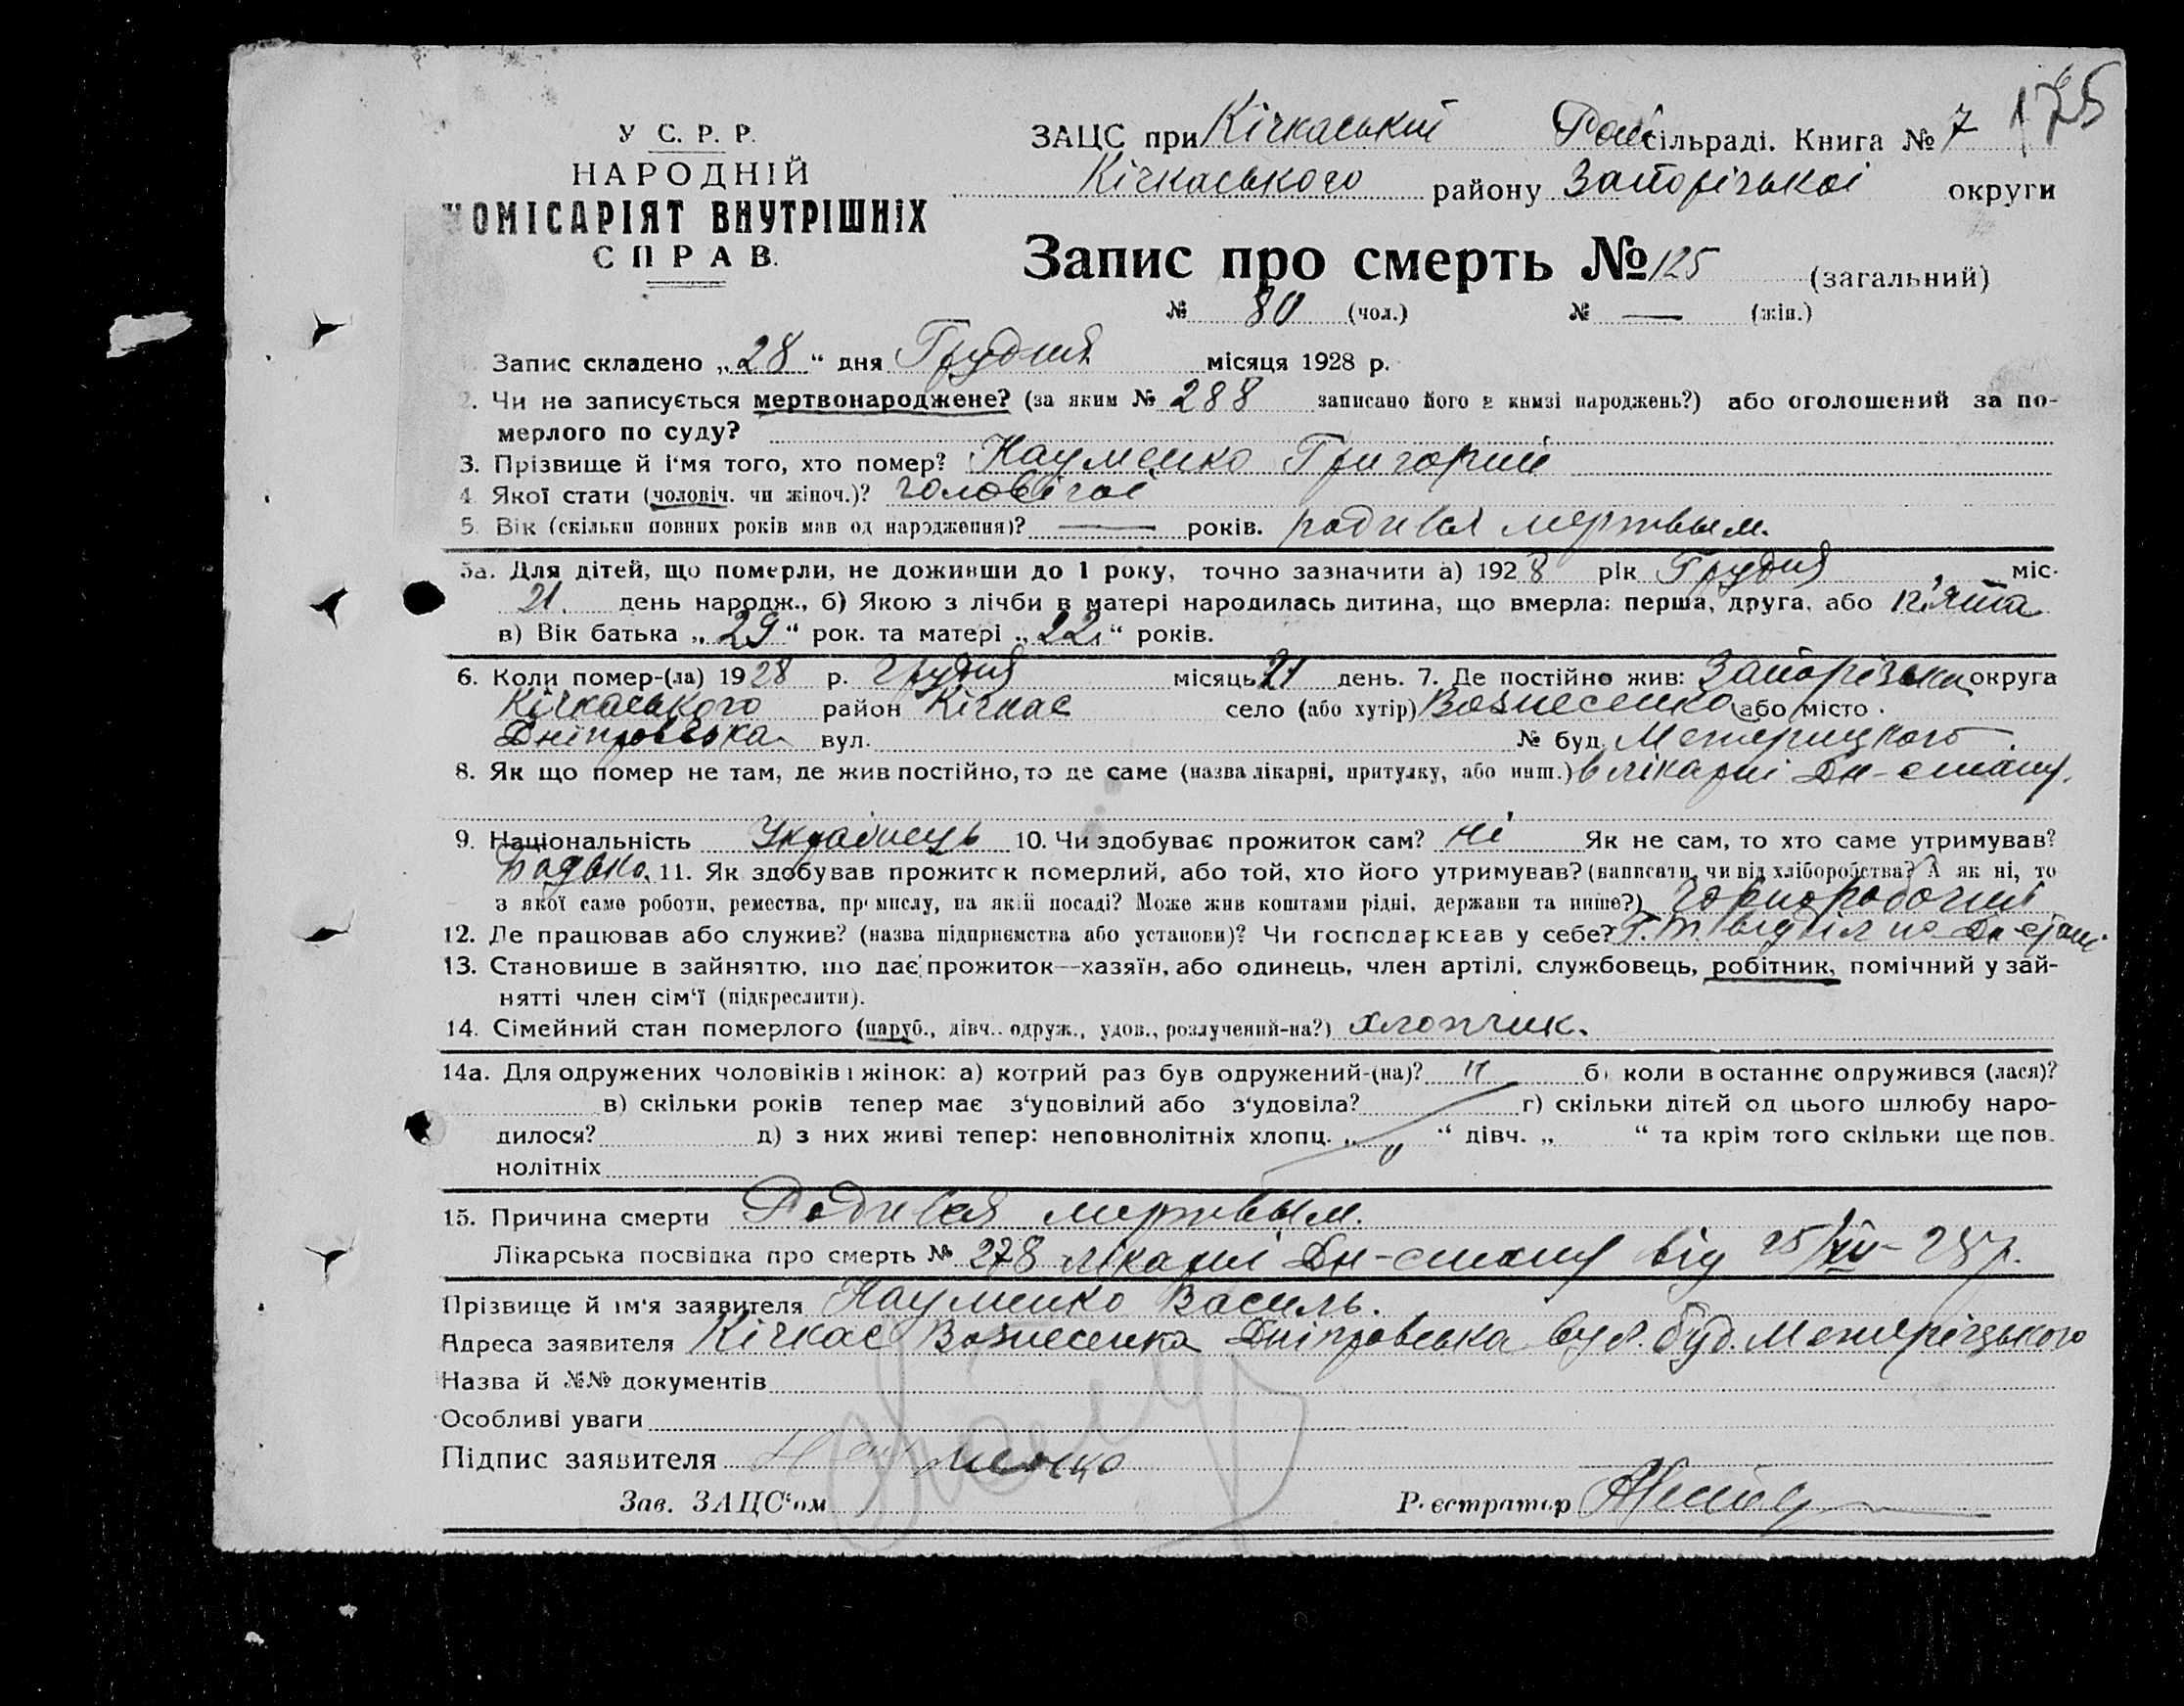 175
У С. Р. Р.
НАРОДНІЙ
КОМІСАРІЯТ ВНУТРІШНІХ
СПРАВ.
ЗАЦС при Кічкаській Рай сільраді. Книга № 7
Кічкаського району Запорізької округи
Запис про смерть № 125 (загальний)
№ 80 (чол.) № — (жін.)
Запис складено „28“ дня Грудня місяця 1928 р.
2. Чи не записується мертвонароджене? (за яким № 288 записано його в книзі народжень?) або оголошений за по-
мерлого по суду?
3. Прізвище й і'мя того, хто помер? Науменко Григорий
4. Якої стати (чоловіч. чи жіноч.)? чоловічої
5. Вік (скільки повних років мав од народження)? — років. родился мертвым.
5а. Для дітей, що померли, не доживши до 1 року, точно зазначити а) 1928 рік Грудня міс.
21. день народж., б) Якою з лічби в матері народилась дитина, що вмерла: перша, друга, або п'ята
в) Вік батька „29“ рок. та матері „22“ років.
6. Коли помер-(ла) 1928 р. Грудня місяць 21 день. 7. Де постійно жив: Запорізька округа
Кічкаського район Кічкас село (або хутір) Вознесенка або місто
Дніпровська вул. № буд.
8. Як що помер не там, де жив постійно, то де саме (назва лікарні, притулку, або инш.) в лікарні Дн-стану.
9. Національність Українець 10. Чи здобуває прожиток сам? ні Як не сам, то хто саме утримував?
Батько. 11. Як здобував прожиток померлий, або той, хто його утримував? (написати, чи від хліборобства? А як ні, то
з якої само роботи, ремества, промислу, на якій посаді? Може жив коштами рідні, держави та инше?) Чорноробочий
12. Де працював або служив? (назва підприємства або установи)? Чи господарював у себе? відділ на Дн-стані
13. Становище в зайняттю, що дає прожиток—хазяїн, або одинець, член артілі, службовець, робітник, помічний у зай-
нятті член сім'ї (підкреслити).
14. Сімейний стан померлого (паруб., дівч. одруж., удов., розлучений-на?) хлопчик.
14а. Для одружених чоловіків і жінок: а) котрий раз був одружений-(на)? " б) коли востаннє одружився (лася)?
в) скільки років тепер має з'удовілий або з'удовіла? г) скільки дітей од цього шлюбу наро-
дилося? д) з них живі тепер: неповнолітніх хлопц. „ “ дівч. „ “ та крім того скільки ще пов.
нолітніх
15. Причина смерти Родился мертвым.
Лікарська посвідка про смерть № 278 лікарні Дн-стану від 25/XII-28 р.
Прізвище й ім'я заявителя Науменко Василь.
Адреса заявителя Кічкас Вознесенка Дніпровська вул. буд.
Назва й №№ документів
Особливі уваги
Підпис заявителя Науменко
Зав. ЗАЦС'ом Реєстратор